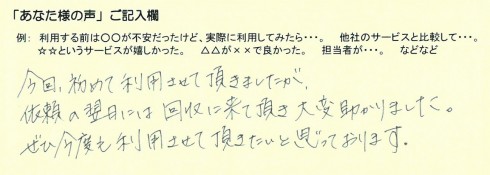 「あなた様の声」ご記入欄
例： 利用する前は〇〇が不安だったけど、実際に利用してみたら・・・。 他社のサービスと比較して・・・。
☆☆というサービスが嬉しかった。 △△が××で良かった。 担当者が・・・。 などなど
今回、初めて利用させて頂きましたが、
依頼の翌日には回収に来て頂き大変助かりました。
ぜひ今度も利用させて頂きたいと思っております。